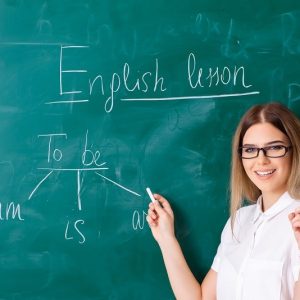 English lesson
To be
is